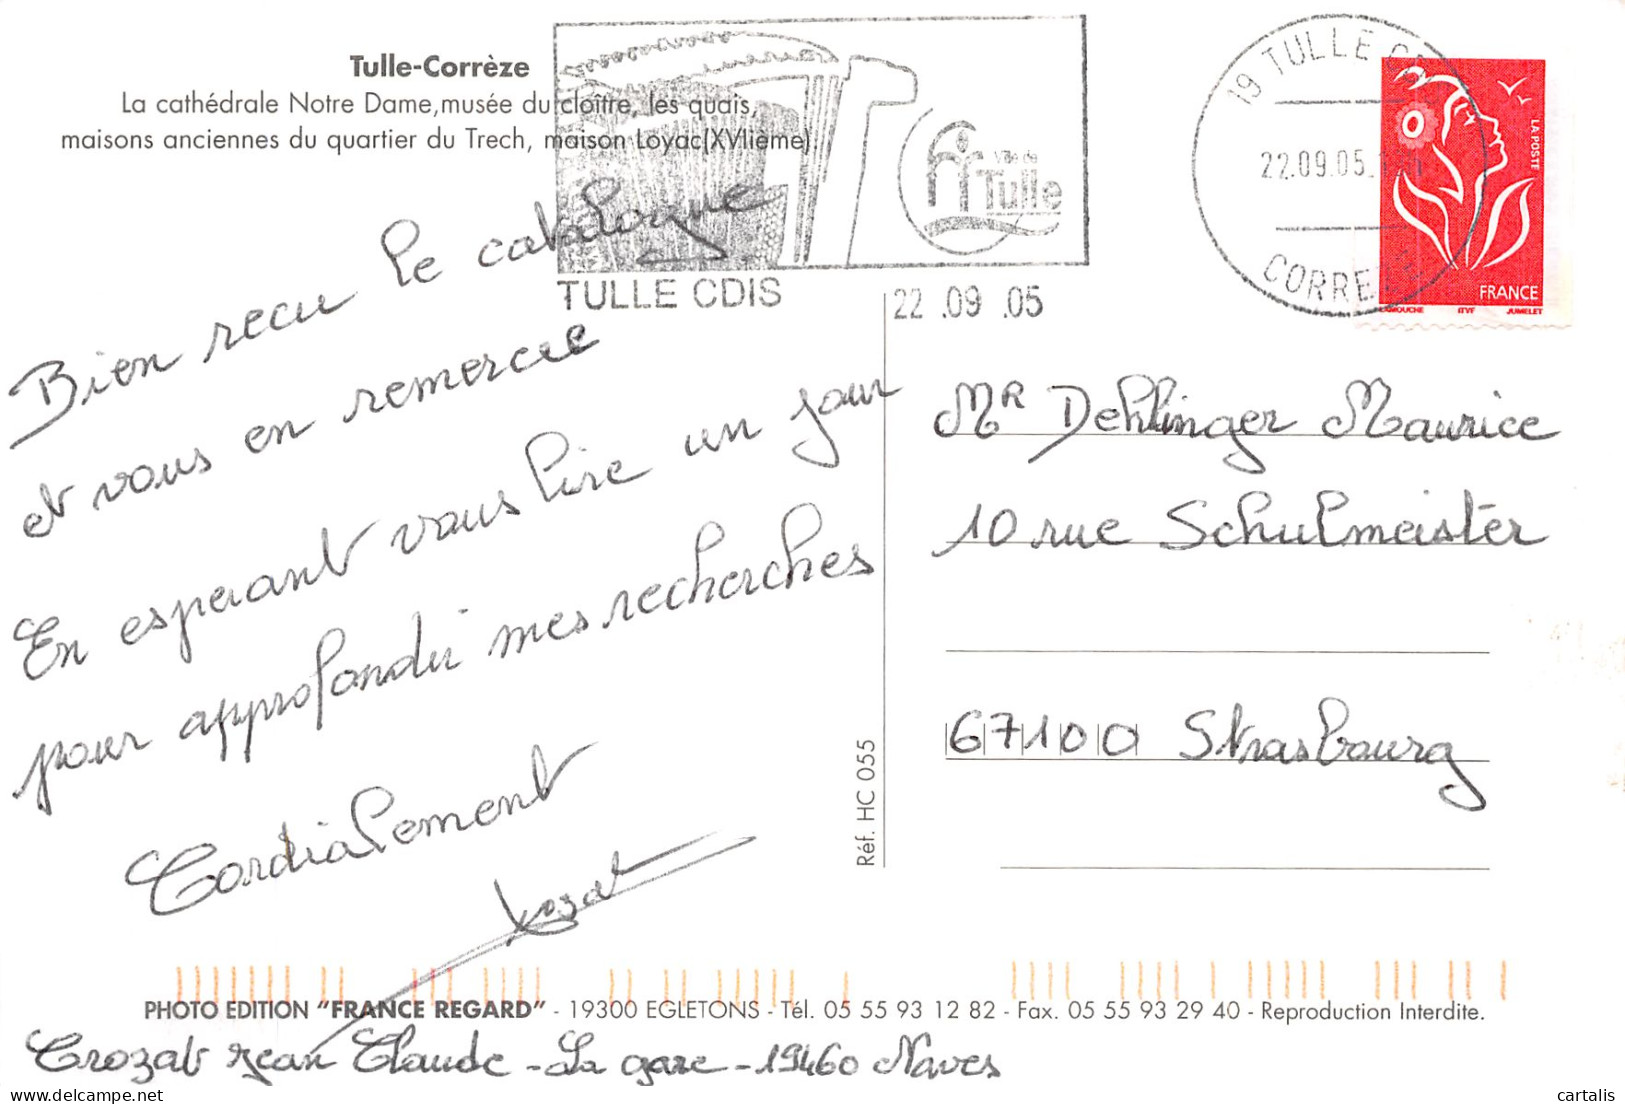 Tulle-Corrèze
La cathédrale Notre Dame, musée du cloître, les quais,
maisons anciennes du quartier du Trech, maison Loyac(XVIième).
Ville de
Tulle
TULLE CDIS
22 .09 .05
19 TULLE
22.09.05
CORREZE
LA POSTE
FRANCE
LAMOUCHE ITVF JUMELET
Bien recu le catalogue
et vous en remercie
En esperant vous lire un jour
pour approfondir mes recherches
Cordialement
Crozat
Mr Dehlinger Maurice
10 rue Schulmeister
67100 Strasbourg
Réf. HC 055
PHOTO EDITION "FRANCE REGARD" - 19300 EGLETONS - Tél. 05 55 93 12 82 - Fax. 05 55 93 29 40 - Reproduction Interdite.
Crozat Jean Claude - La gare - 19460 Naves
cartalis